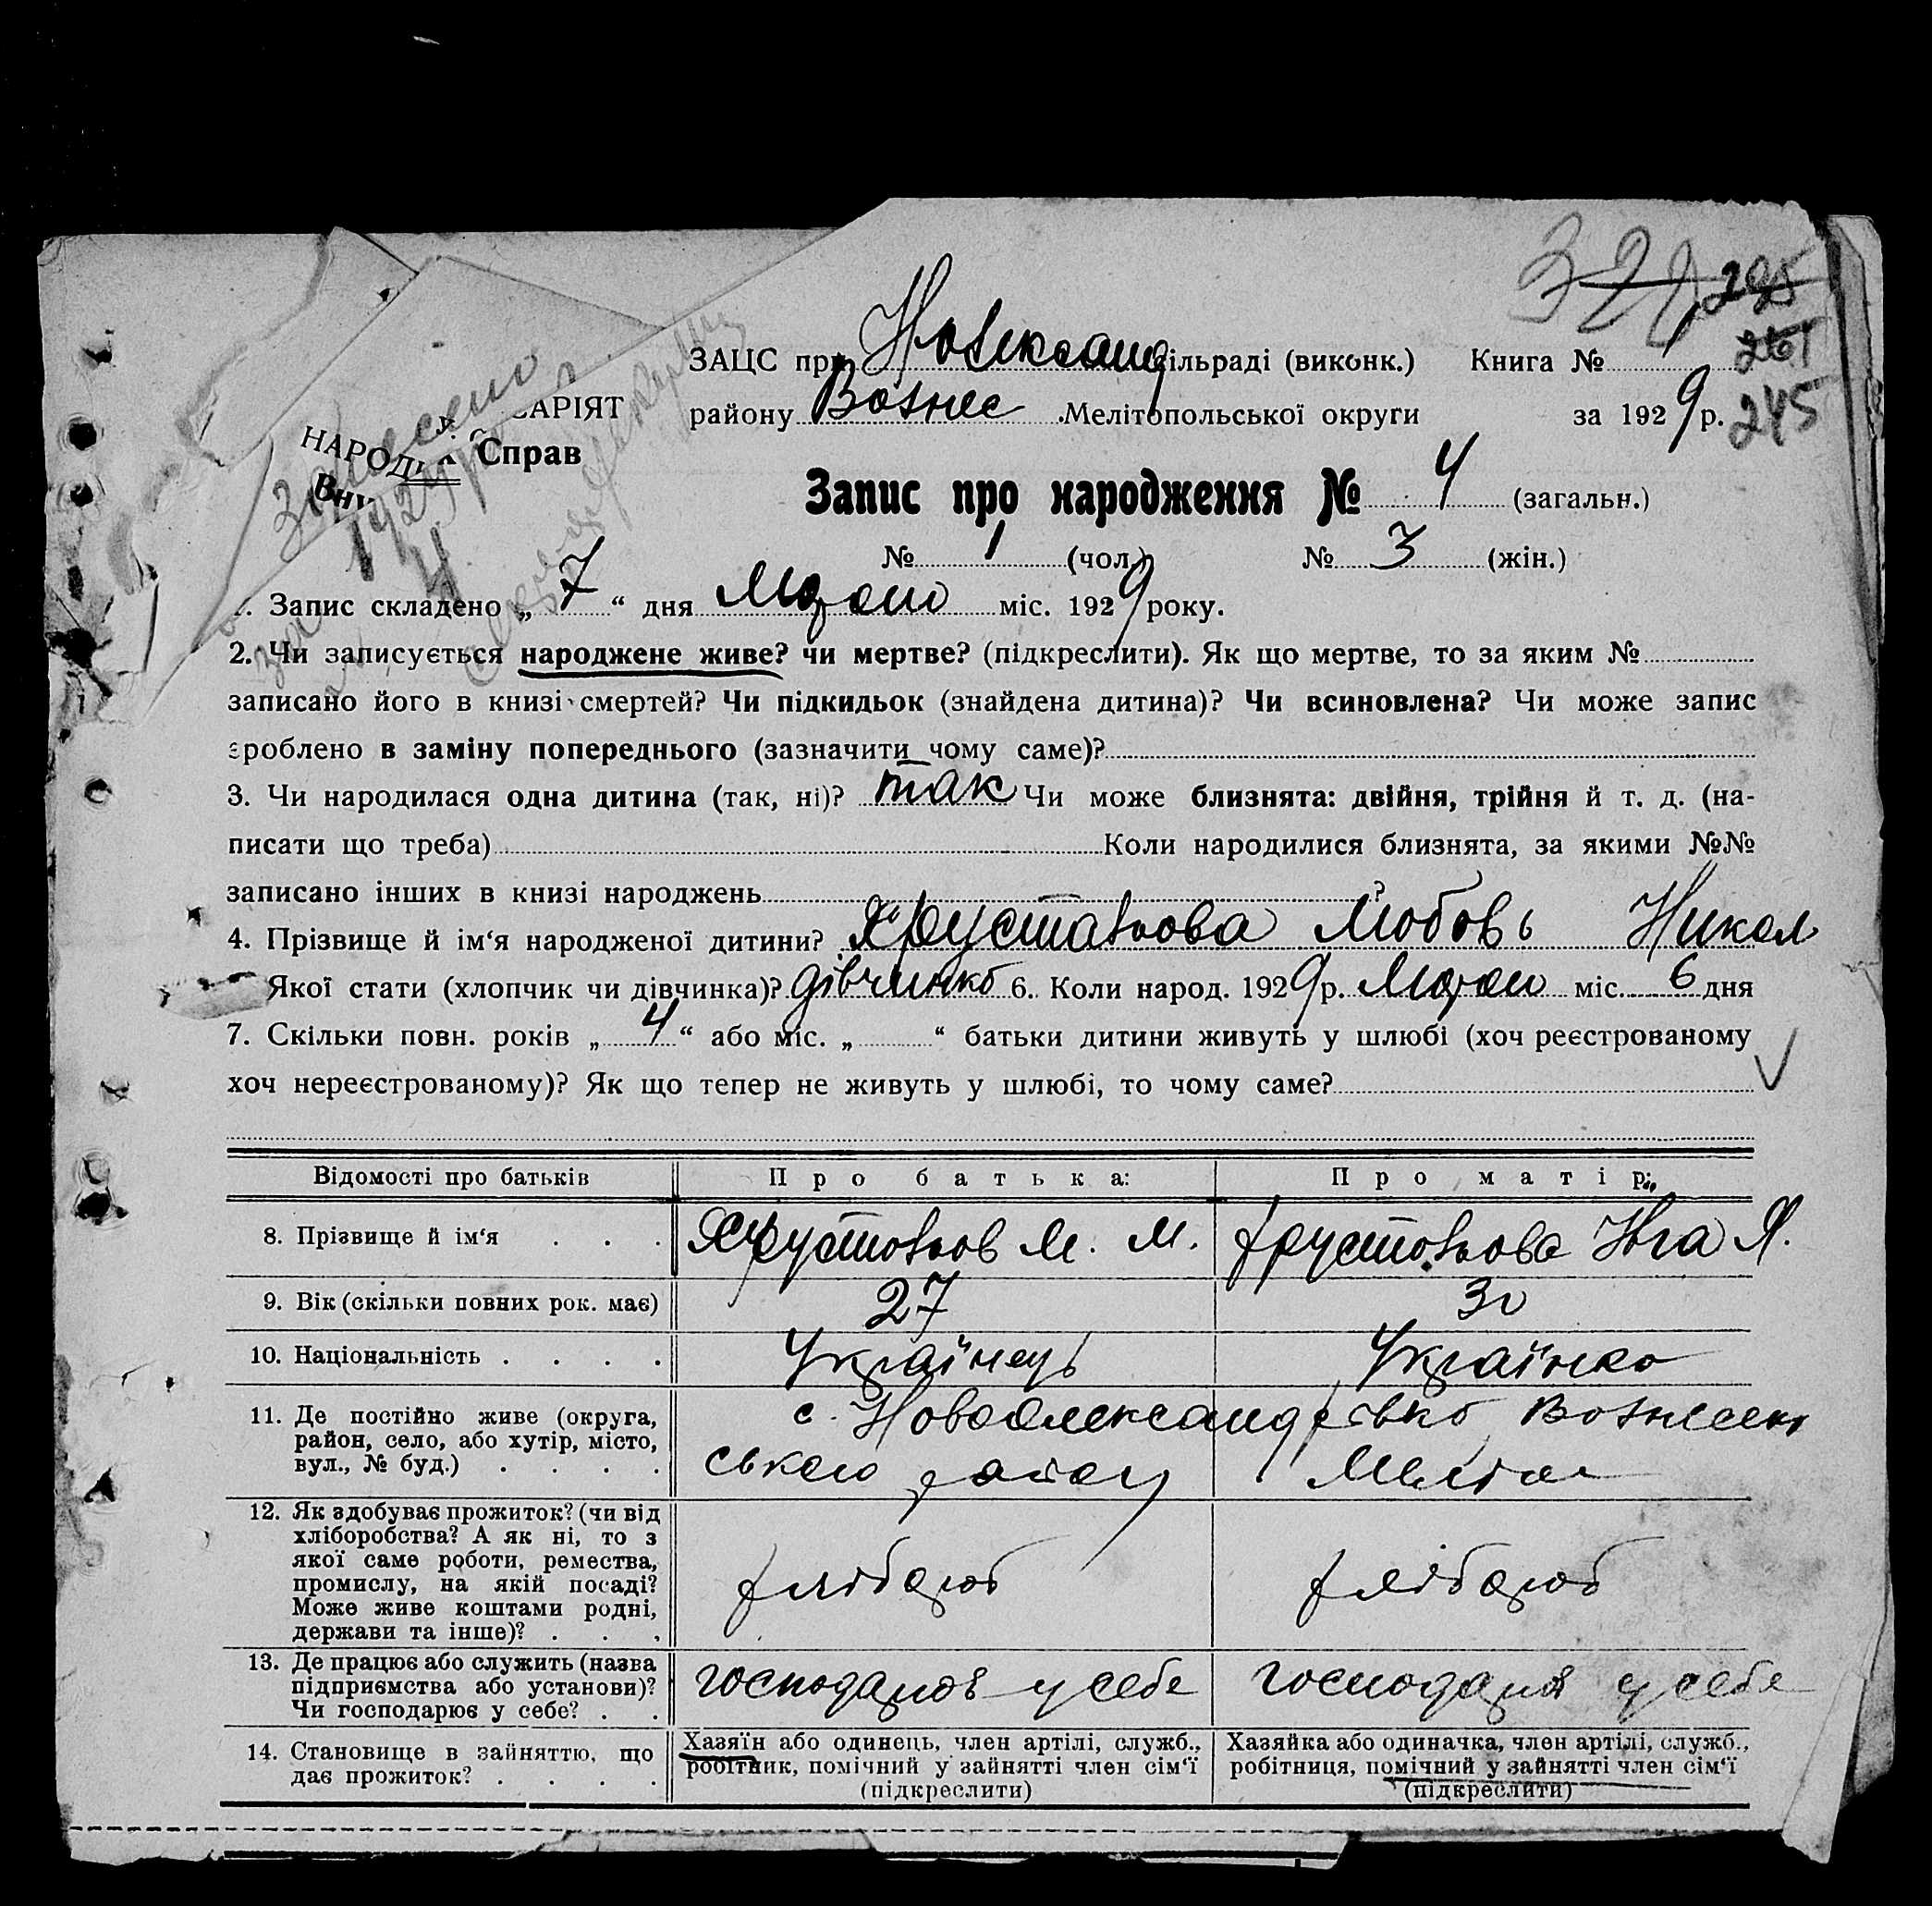 322 295
261
245
ЗАЦС при Новоександ сільраді (виконк.) Книга №
району Вознес. Мелітопольської округи за 1929 р.
НАРОДН САРІЯТ
Вну Справ
Запис про народження № 4 (загальн.)
№ 1 (чол.) № 3 (жін.)
1. Запис складено „ 7 “ дня міс. 1929 року.
2. Чи записується народжене живе? чи мертве? (підкреслити). Як що мертве, то за яким №
записано його в книзі смертей? Чи підкидьок (знайдена дитина)? Чи всиновлена? Чи може запис
зроблено в заміну попереднього (зазначити чому саме)?
3. Чи народилася одна дитина (так, ні)? так Чи може близнята: двійня, трійня й т. д. (на-
писати що треба) Коли народилися близнята, за якими №№
записано інших в книзі народжень ?
4. Прізвище й ім‘я народженої дитини? Хрустальова Любовь Никол
Якої стати (хлопчик чи дівчинка)? дівчинка 6. Коли народ. 1929 р. міс. 6 дня
7. Скільки повн. років „ 4 “ або міс. „ “ батьки дитини живуть у шлюбі (хоч реєстрованому
хоч нереєстрованому)? Як що тепер не живуть у шлюбі, то чому саме?
Відомості про батьків Про батька: Про матір:
8. Прізвище й ім‘я Хрустальов М. М. Хрустальова Я.
9. Вік (скільки повних рок. має) 27 30
10. Національність Українець Українка
11. Де постійно живе (округа, с. Новоолександрівка Вознесен
район, село, або хутір, місто, ського району Меліт
вул., № буд.)
12. Як здобуває прожиток? (чи від
хліборобства? А як ні, то з
якої саме роботи, ремества, хлібороб хлібороб
промислу, на якій посаді?
Може живе коштами родні,
держави та інше)?
13. Де працює або служить (назва господарює у себе господарює у себе
підприємства або установи)?
Чи господарює у себе?
14. Становище в зайняттю, що Хазяїн або одинець, член артілі, служб., Хазяйка або одиначка, член артілі, служб.,
дає прожиток? робітник, помічний у зайнятті член сім‘ї робітниця, помічний у зайнятті член сім‘ї
(підкреслити) (підкреслити)